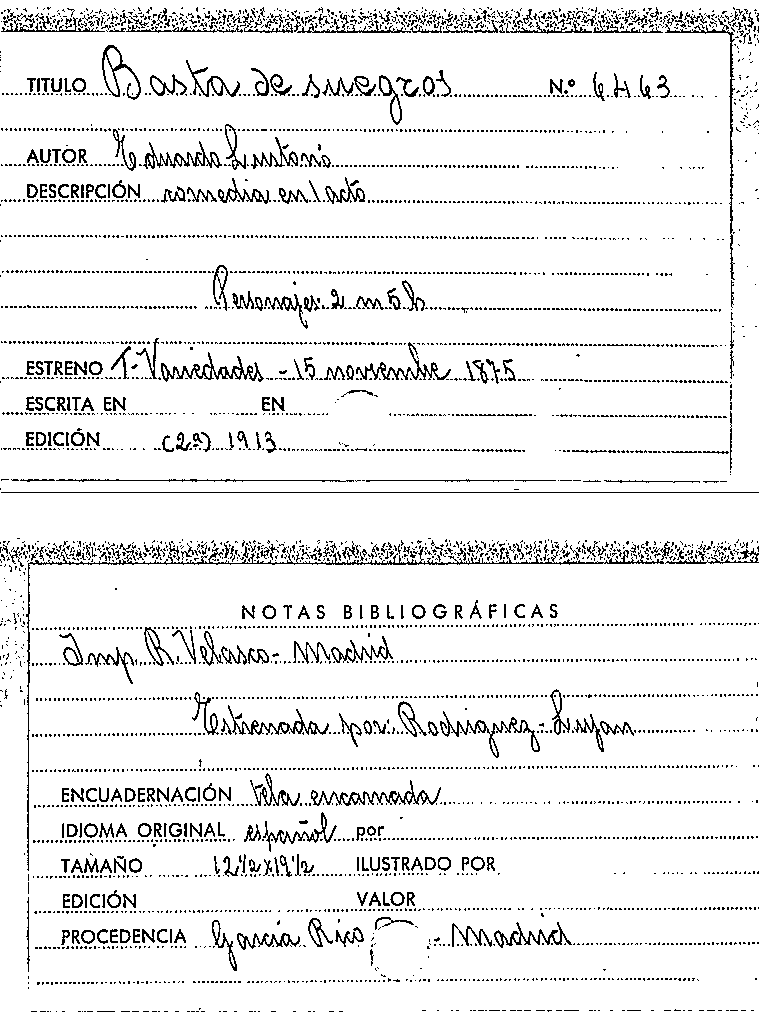 TITULO Basta de suegros N.º 6463
AUTOR Eduardo Lustonó
DESCRIPCIÓN comedia en 1 acto
Personajes: 2 m 5 h
ESTRENO T. Variedades - 15 noviembre 1875
ESCRITA EN EN
EDICIÓN (2ª) 1913
NOTAS BIBLIOGRÁFICAS
Imp. R. Velasco - Madrid
Estrenada por: Rodriguez - Lujan
ENCUADERNACIÓN tela encarnada
IDIOMA ORIGINAL español por
TAMAÑO 12½ x 19½ ILUSTRADO POR
EDICIÓN VALOR
PROCEDENCIA García Rico - Madrid